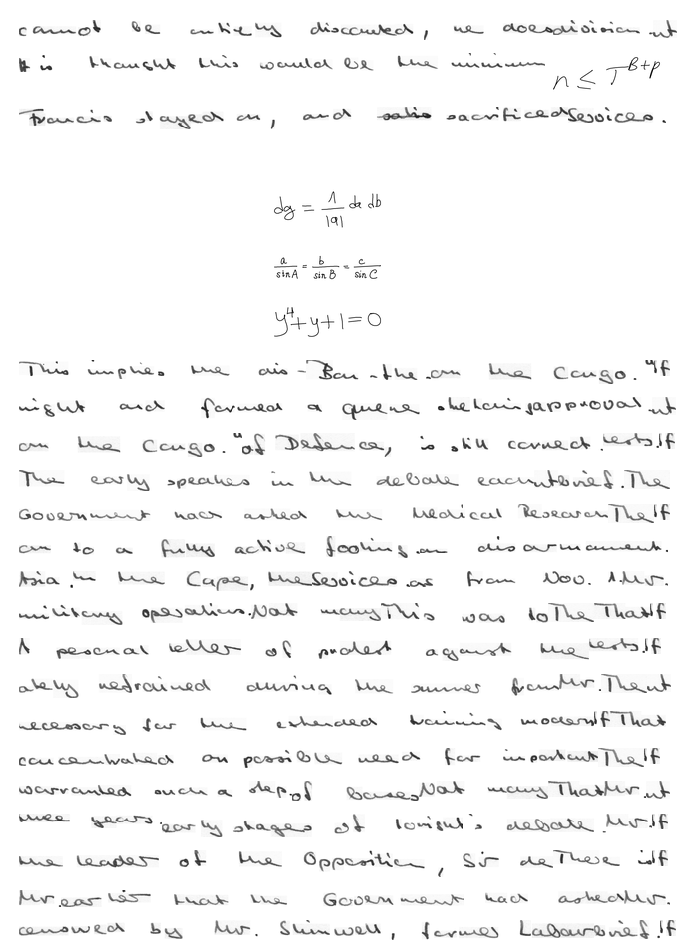 cannot be entirely discounted, he doesdivision.ut
It is thought this would be the minimum n ≤ T^{B+p}
Francis stayed on, and sacrificedServices.
dg = 1/|a| da db
a/sinA = b/sinB = c/sinC
y^4+y+1=0
This implies the dis-Ban-the.on the Congo."If
night and formed a queue approval.ut
on the Congo."of Defence, is still correct.tests.If
The early speakes in the debate each brief.The
Government had asked the Medical ResearchTheIf
on to a fully active footing.on disarmament.
Asia.In the Cape, theServices.as from Nov. 1.Mr.
military operations.Not manyThis was toThe ThatIf
A personal letter of protest against the tests.If
ately refrained during the summer fromMr.Theut
necessary for the extended training modernIfThat
concentrated on possible need for importantTheIf
warranted such a step.of basesNot manyThatMr.ut
three years.early stages of tonight's debate.Mr.If
the leader of the Opposition, Sir deThere isIf
Mr.earlier that the Government had askedMr.
censowed by Mr. Shinwell, former Labourbrief.If